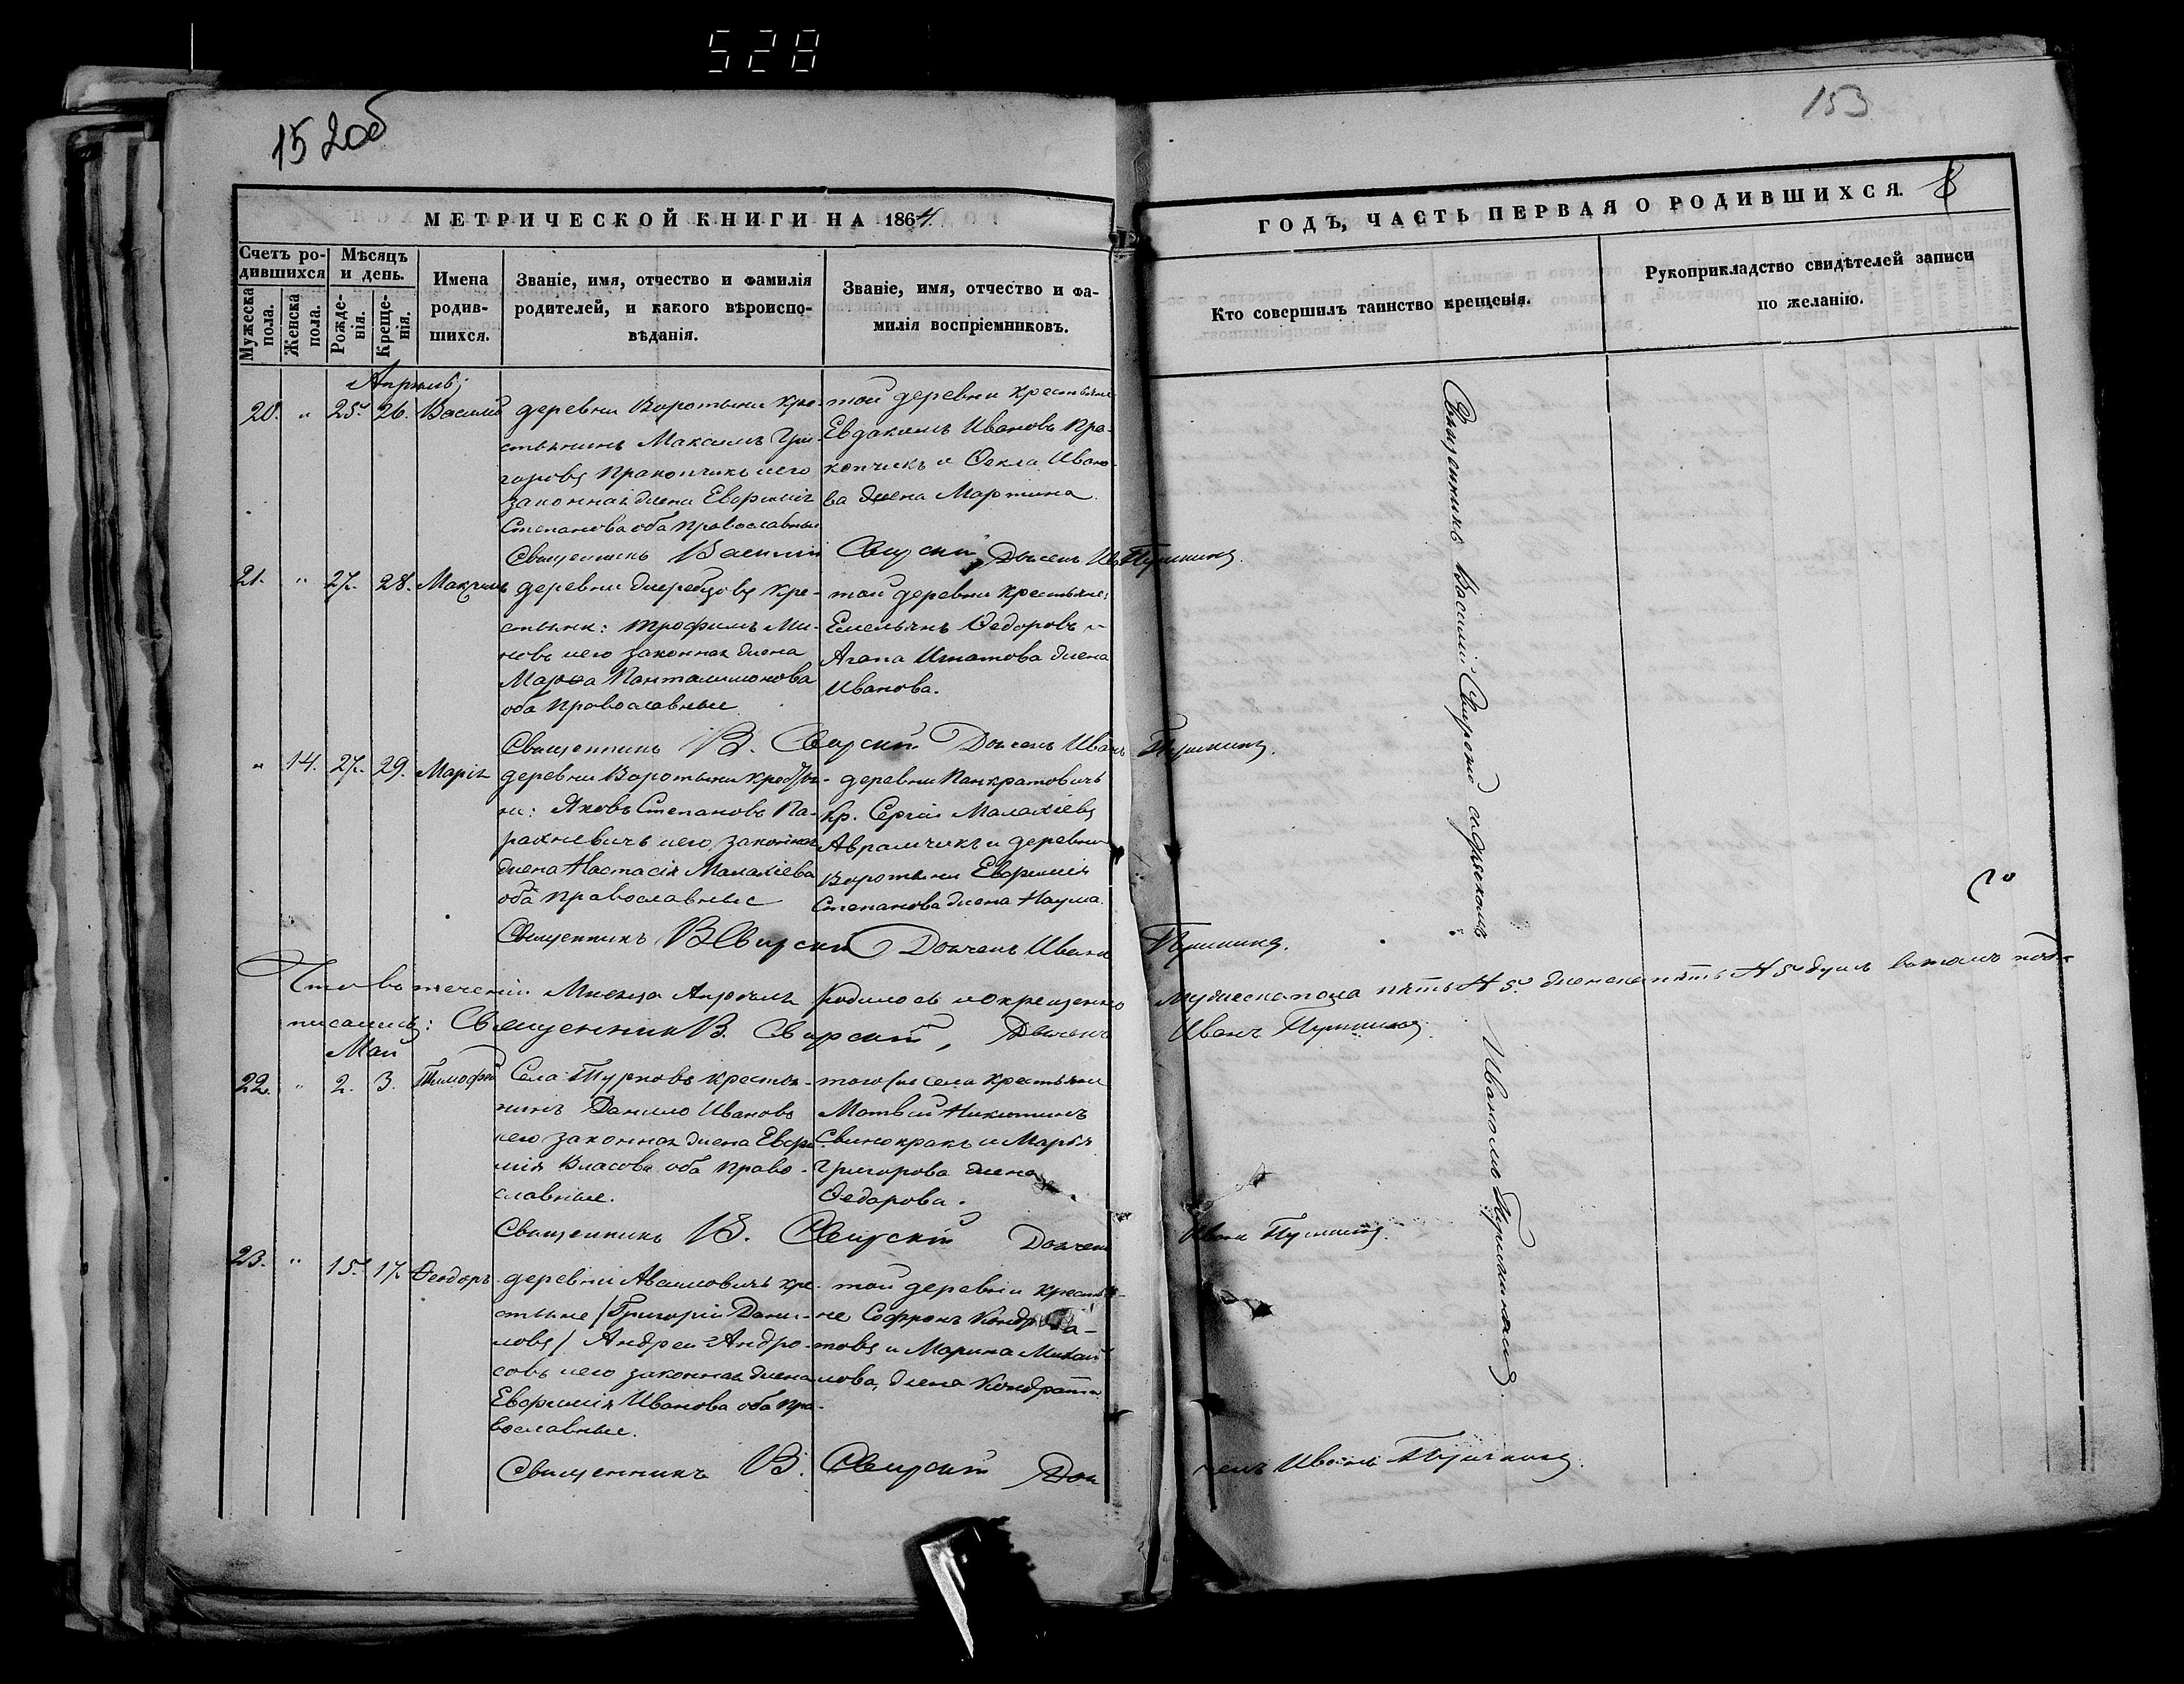 528
152об
153
8
МЕТРИЧЕСКОЙ КНИГИ НА 1864.
ГОДЪ, ЧАСТЬ ПЕРВАЯ О РОДИВШИХСЯ.
Счетъ родившихся
Мѣсяцъ и день.
Мужеска пола.
Женска пола.
Рожденія.
Крещенія.
Имена родившихся.
Званіе, имя, отчество и фамилія родителей, и какого вѣроисповѣданія.
Званіе, имя, отчество и фамилія воспріемниковъ.
Кто совершилъ таинство крещенія.
Рукоприкладство свидѣтелей записи по желанію.
Апрѣль;
20. " 25. 26. Василій
деревни Воротыни кре-
стьянинъ Максимъ Гри-
горовъ Пракопчикъ и его
законная жена Евфимія
Степанова оба православные
той деревни крестьяне
Евдокимъ Ивановъ Пра-
копчикъ и Ѳекла Ивано-
ва жена Мартина
Священникъ Василій Свирскій, Дьячекъ Ив. Пушкинъ.
21. " 27. 28. Максимъ
деревни Жеребцовъ кре-
стьян: Трофимъ Ми-
новъ и его законная жена
Марѳа Панталимонова
оба православные
той деревни крестьяне:
Емельянъ Ѳедоровъ и
Агапа Игнатова жена
Иванова.
Священникъ В. Свирскій Дьячекъ Иванъ
" 14. 27. 29. Марія
деревни Воротыни крестья-
не: Яковъ Степановъ Па-
рахневичъ и его законная
жена Настасія Малахіева
оба православные
деревни Панкратовичъ
кр. Сергій Малахіевъ
Аврамчикъ и деревни
Воротыни Евфимія
Степанова жена Наума.
Священникъ В Свирскій Дьячекъ Иванъ
Что въ теченіи Мисяца Апрѣля родилось и окрещенно мужеска пола пять № 5. женска пять № 5 душъ въ томъ подп-
писались: Священникъ В. Свирскій, Дьячекъ Иванъ
Май
22. " 2. 3. Тимофей
Села Турковъ крестья-
нинъ Данило Ивановъ
и его законная жена Евфи-
мія Власова оба право-
славные.
того же села крестьяне
Матвей Никитинъ
и Марья
Григорова жена
Ѳедарова.
Священникъ В. Свирскій Дьячекъ Иванъ
23. " 15. 17. Ѳеодоръ
деревни кре-
стьяне /Григорій Дани-
ловъ/ Андрей Андро-
совъ и его законная жена
Евфимія Иванова оба пра-
вославные.
той деревни крестья-
не Софронъ Кондра-
товъ и Марина Михай-
лова, жена Кондрата
Священникъ В. Свирскій Дья
чекъ Иванъ
Священникъ Василій Свирскій съ дьячкомъ Иваномъ